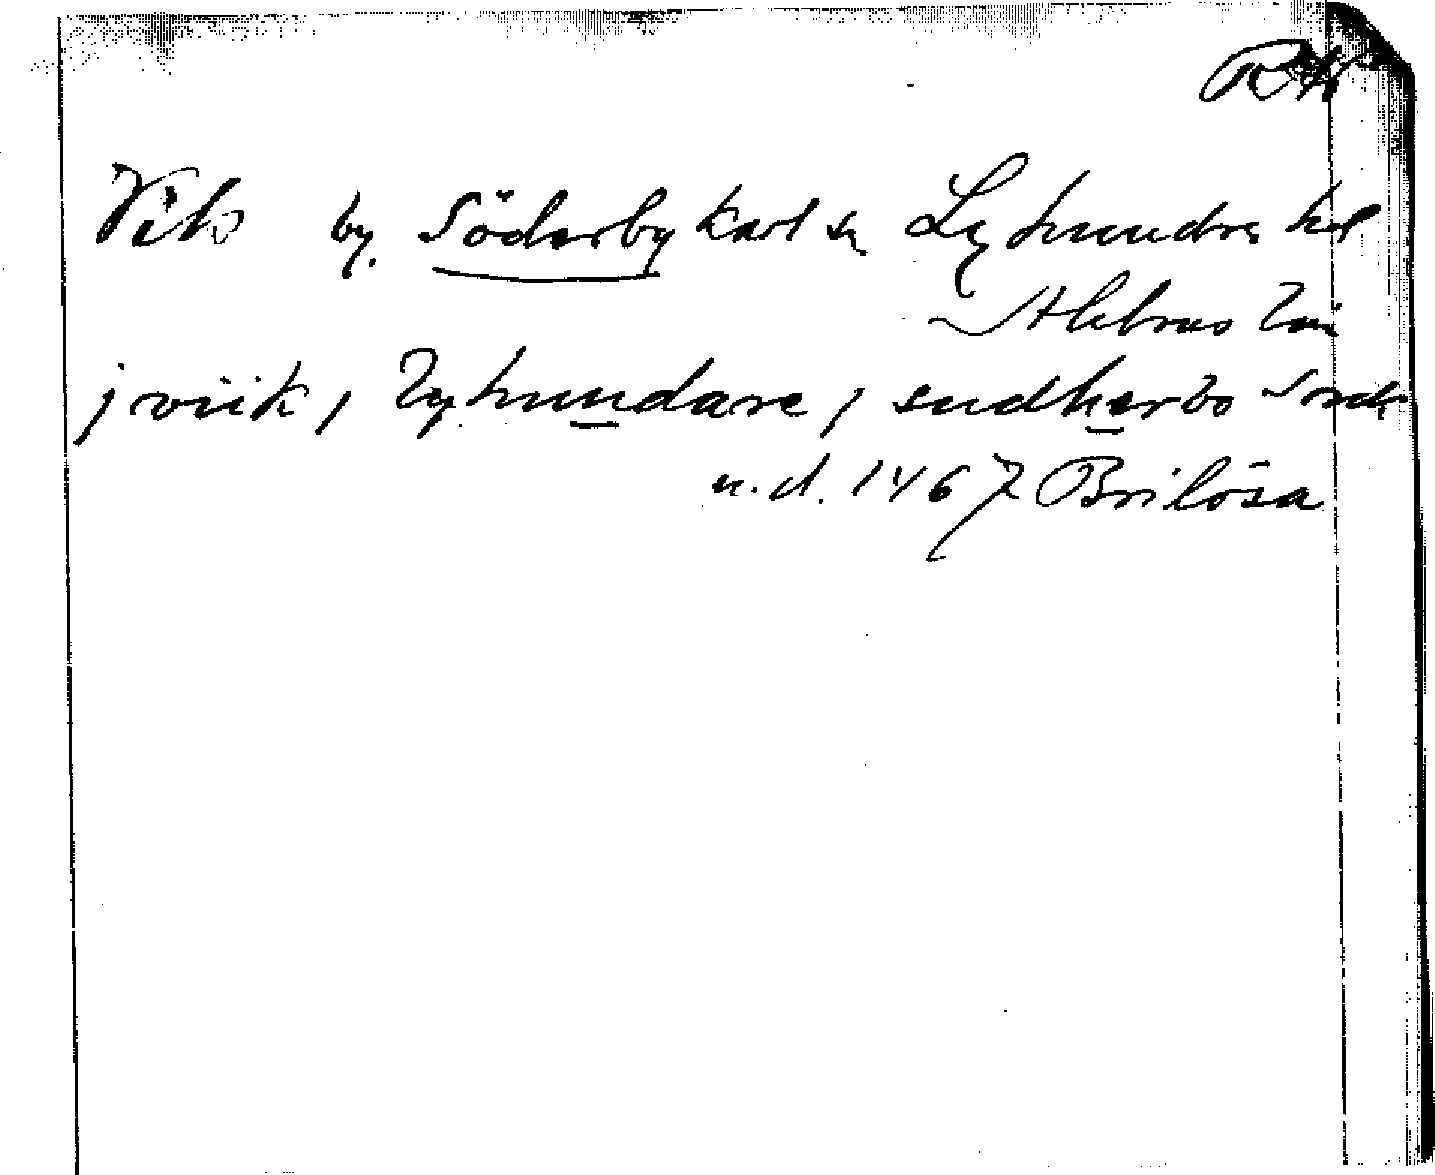 Vik by. Söderby Karl sn Lyhundra hd
Sthlms län
j viik, lyhundare, sudherbo sock
u.d. 1467 Brilösa